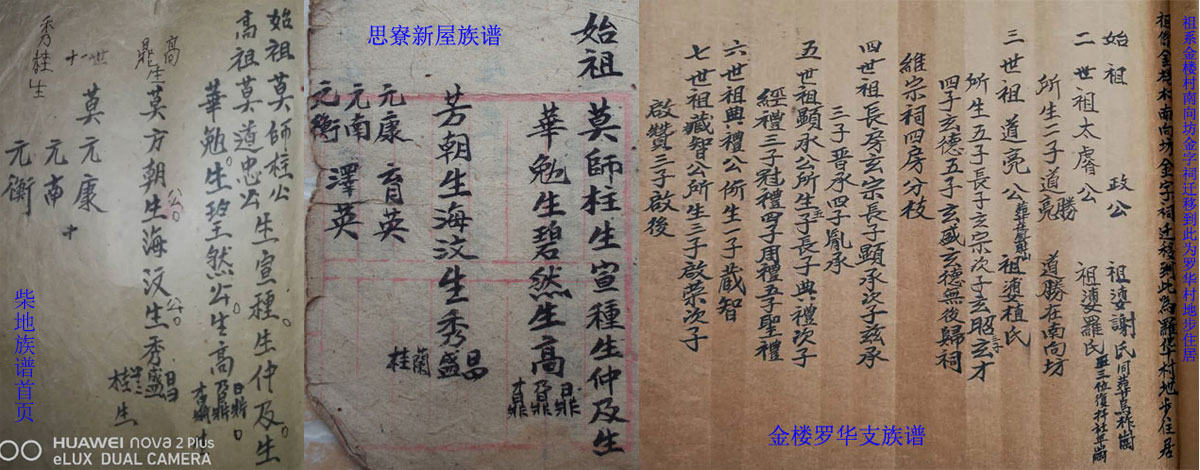 始祖莫師柱公生宣種。生仲及生
高祖莫道忠公
華勉。生堂然公。生高
日鼎
乃鼎
才鼎
高
鼎生莫方朝生海汶生秀盛昌
公。
桂生
十一世
莫元康
元南
元衡
秀桂生
柴地族谱首页
HUAWEI nova 2 Plus
eLUX DUAL CAMERA
思寮新屋族谱
始祖
莫師柱生宣種生仲及生
華勉生碧然生高
日鼎
乃鼎
才鼎
芳朝生海汶生秀
昌
盛
蘭
桂
元康 育英
元南
元衡 澤英
祖系金楼村南向坊金字祠迁移到此为罗华村地步住居
祖系金楼本南向坊金字祠迁移到此為羅華村地步住居
始祖 政公 祖婆謝氏
二世祖太膺公 祖婆羅氏
所生二子道亮 道勝在南向坊
勝
三世祖道亮公 祖婆植氏
所生五子長子玄宗次子玄昭玄才
三子
四子玄德五子玄盛玄德無後歸祠
維宗祠四房分枝
四世祖長房玄宗長子顕承次子兹承
三子晋承四子胤承
五世祖顕承公所生五子長子典禮次子
經禮三子冠禮四子周禮五子聖禮
六世祖典禮公所生一子藏智
七世祖藏智公所生三子啟荣次子
啟贊三子啟後
金楼罗华支族谱